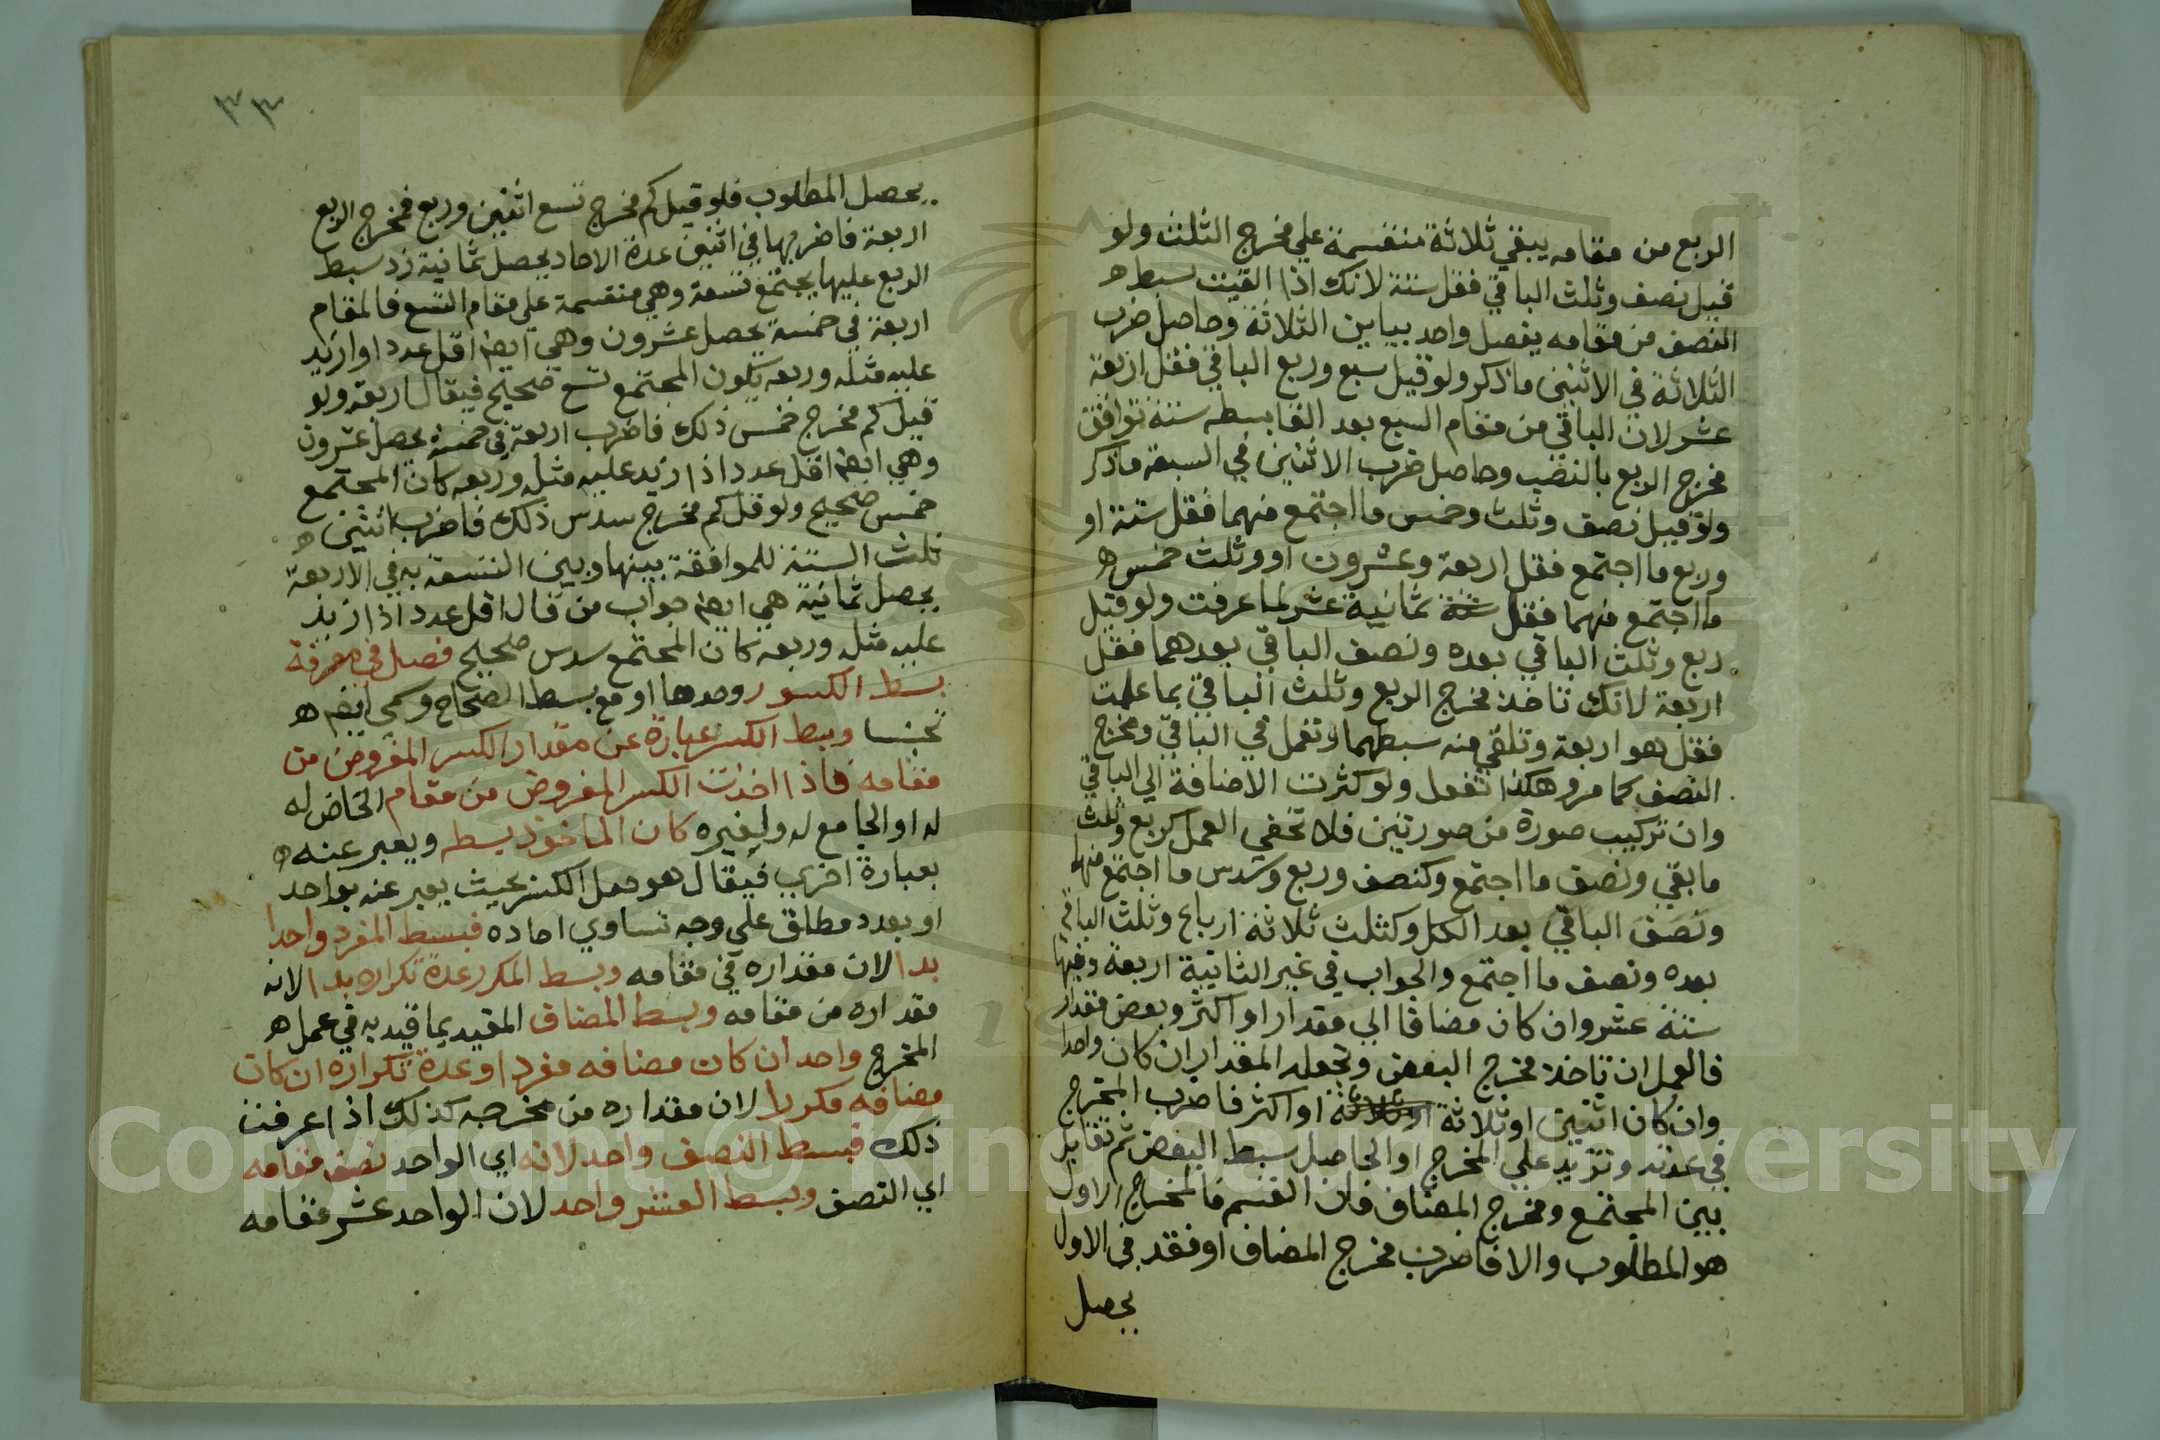 الربع من مقامه يبقي ثلاثة منقسمة علي مخرج الثلث ولو
قيل نصف وثلث الباقي فقل ستة لانك اذا القيت بسط ه
النصف من مقامه يفصل واحد يباين الثلاثة وحاصل ضرب
الثلاثة في الاثنين ما ذكر ولو قيل سبع وربع الباقي فقل اربعة
عشر لان الباقي من مقام السبع بعد القا بسطه ستة توافق
مخرج الربع بالنصف وحاصل ضرب الاثنين في السبعة ما ذكر
ولو قيل نصف وثلث وخمس ما اجتمع منهما فقل ستة او
وربع ما اجتمع فقل اربعة وعشرون او وثلث خمس ه
ما اجتمع منهما فقل ثمانية عشر لما عرفت ولو قيل
ربع وثلث الباقي بعده ونصف الباقي بعدهما فقل
اربعة لانك تاخذ مخرج الربع وثلث الباقي بما علمت
فقل هو اربعة وتلقي منه بسطهما وتعمل في الباقي ومخرج
النصف كما مر وهكذا تفعل ولو كثرت الاضافة الي الباقي
وان تركيب صورة من صورتين فلا تخفي العمل كربع وثلث
ما بقي ونصف ما اجتمع وكنصف وربع وسدس ما اجتمع منها
ونصف الباقي بعد الكل وكثلث ثلاثة ارباع وثلث الباقي
بعده ونصف ما اجتمع والجواب في غير الثانية اربعة وفيها
ستة عشر وان كان مضافا الي مقدار او اكثر وبعض مقدار
فالعمل ان تاخذ مخرج البعض وتجعله المقدار ان كان واحدا
وان كان اثنين او ثلاثة او اكثر فاضرب المخرج
في عدته وتزيد علي المخرج او الحاصل بسط البعض ثم تقابل
بين المجتمع ومخرج المضاف فان انقسم فالمخرج الاول
هو المطلوب والا فاضرب مخرج المضاف او وفقه في الاول
يحصل
٣٣
يحصل المطلوب فلو قيل كم مخرج تسع اثنين وربع فمخرج الربع
اربعة فاضربها في اثنين عدة الاحاد يحصل ثمانية زد بسط
الربع عليها يجتمع تسعة وهي منقسمة علي مقام التسع فالمقام
اربعة في خمسة يحصل عشرون وهي ايضا اقل عدد اوازيد
عليه مثله وربعه يكون المجتمع تسع صحيح فيقال اربعة ولو
قيل كم مخرج خمس ذلك فاضرب اربعة في خمسة يحصل عشرون
وهي ايضا اقل عدد اذا زيد عليه مثله وربعه كان المجتمع
خمس صحيح ولو قل كم مخرج سدس ذلك فاضرب اثنين ه
ثلث الستة للموافقة بينها وبين التسعة به في الاربعة
يحصل ثمانية هي ايضا جواب من قال اقل عدد اذا زيد
عليه مثله وربعه كان المجتمع سدس صحيح فصل في معرفة
بسط الكسور وحدها او مع بسط الصحاح وسمي ايضا ه
تجنيسا وبسط الكسر عبارة عن مقدار الكسر المفروض من
مقامه فاذا اخذت الكسر المفروض من مقام الخاص له
له او الجامع له ولغيره كان الماخوذ بسطه ويعبر عنه ه
بعبارة اخري فيقال هو جعل الكسر بحيث يعبر عنه بواحد
او بعدد مطلق علي وجه تساوي احاده فبسط المفرد واحدا
بدا لان مقداره في مقامه وبسط المكرر عدة تكراره بدا لانه
مقداره من مقامه وبسط المضاف المقيد بما قيد به في عمل ه
المخرج واحد ان كان مضافه مفردا وعدة تكراره ان كان
مضافه مكررا لان مقداره من مخرجه كذلك اذا عرفت
ذلك فبسط النصف واحد لانه اي الواحد نصف مقامه
اي النصف وبسط العشر واحد لان الواحد عشر مقامه
Copyright © King Saud University